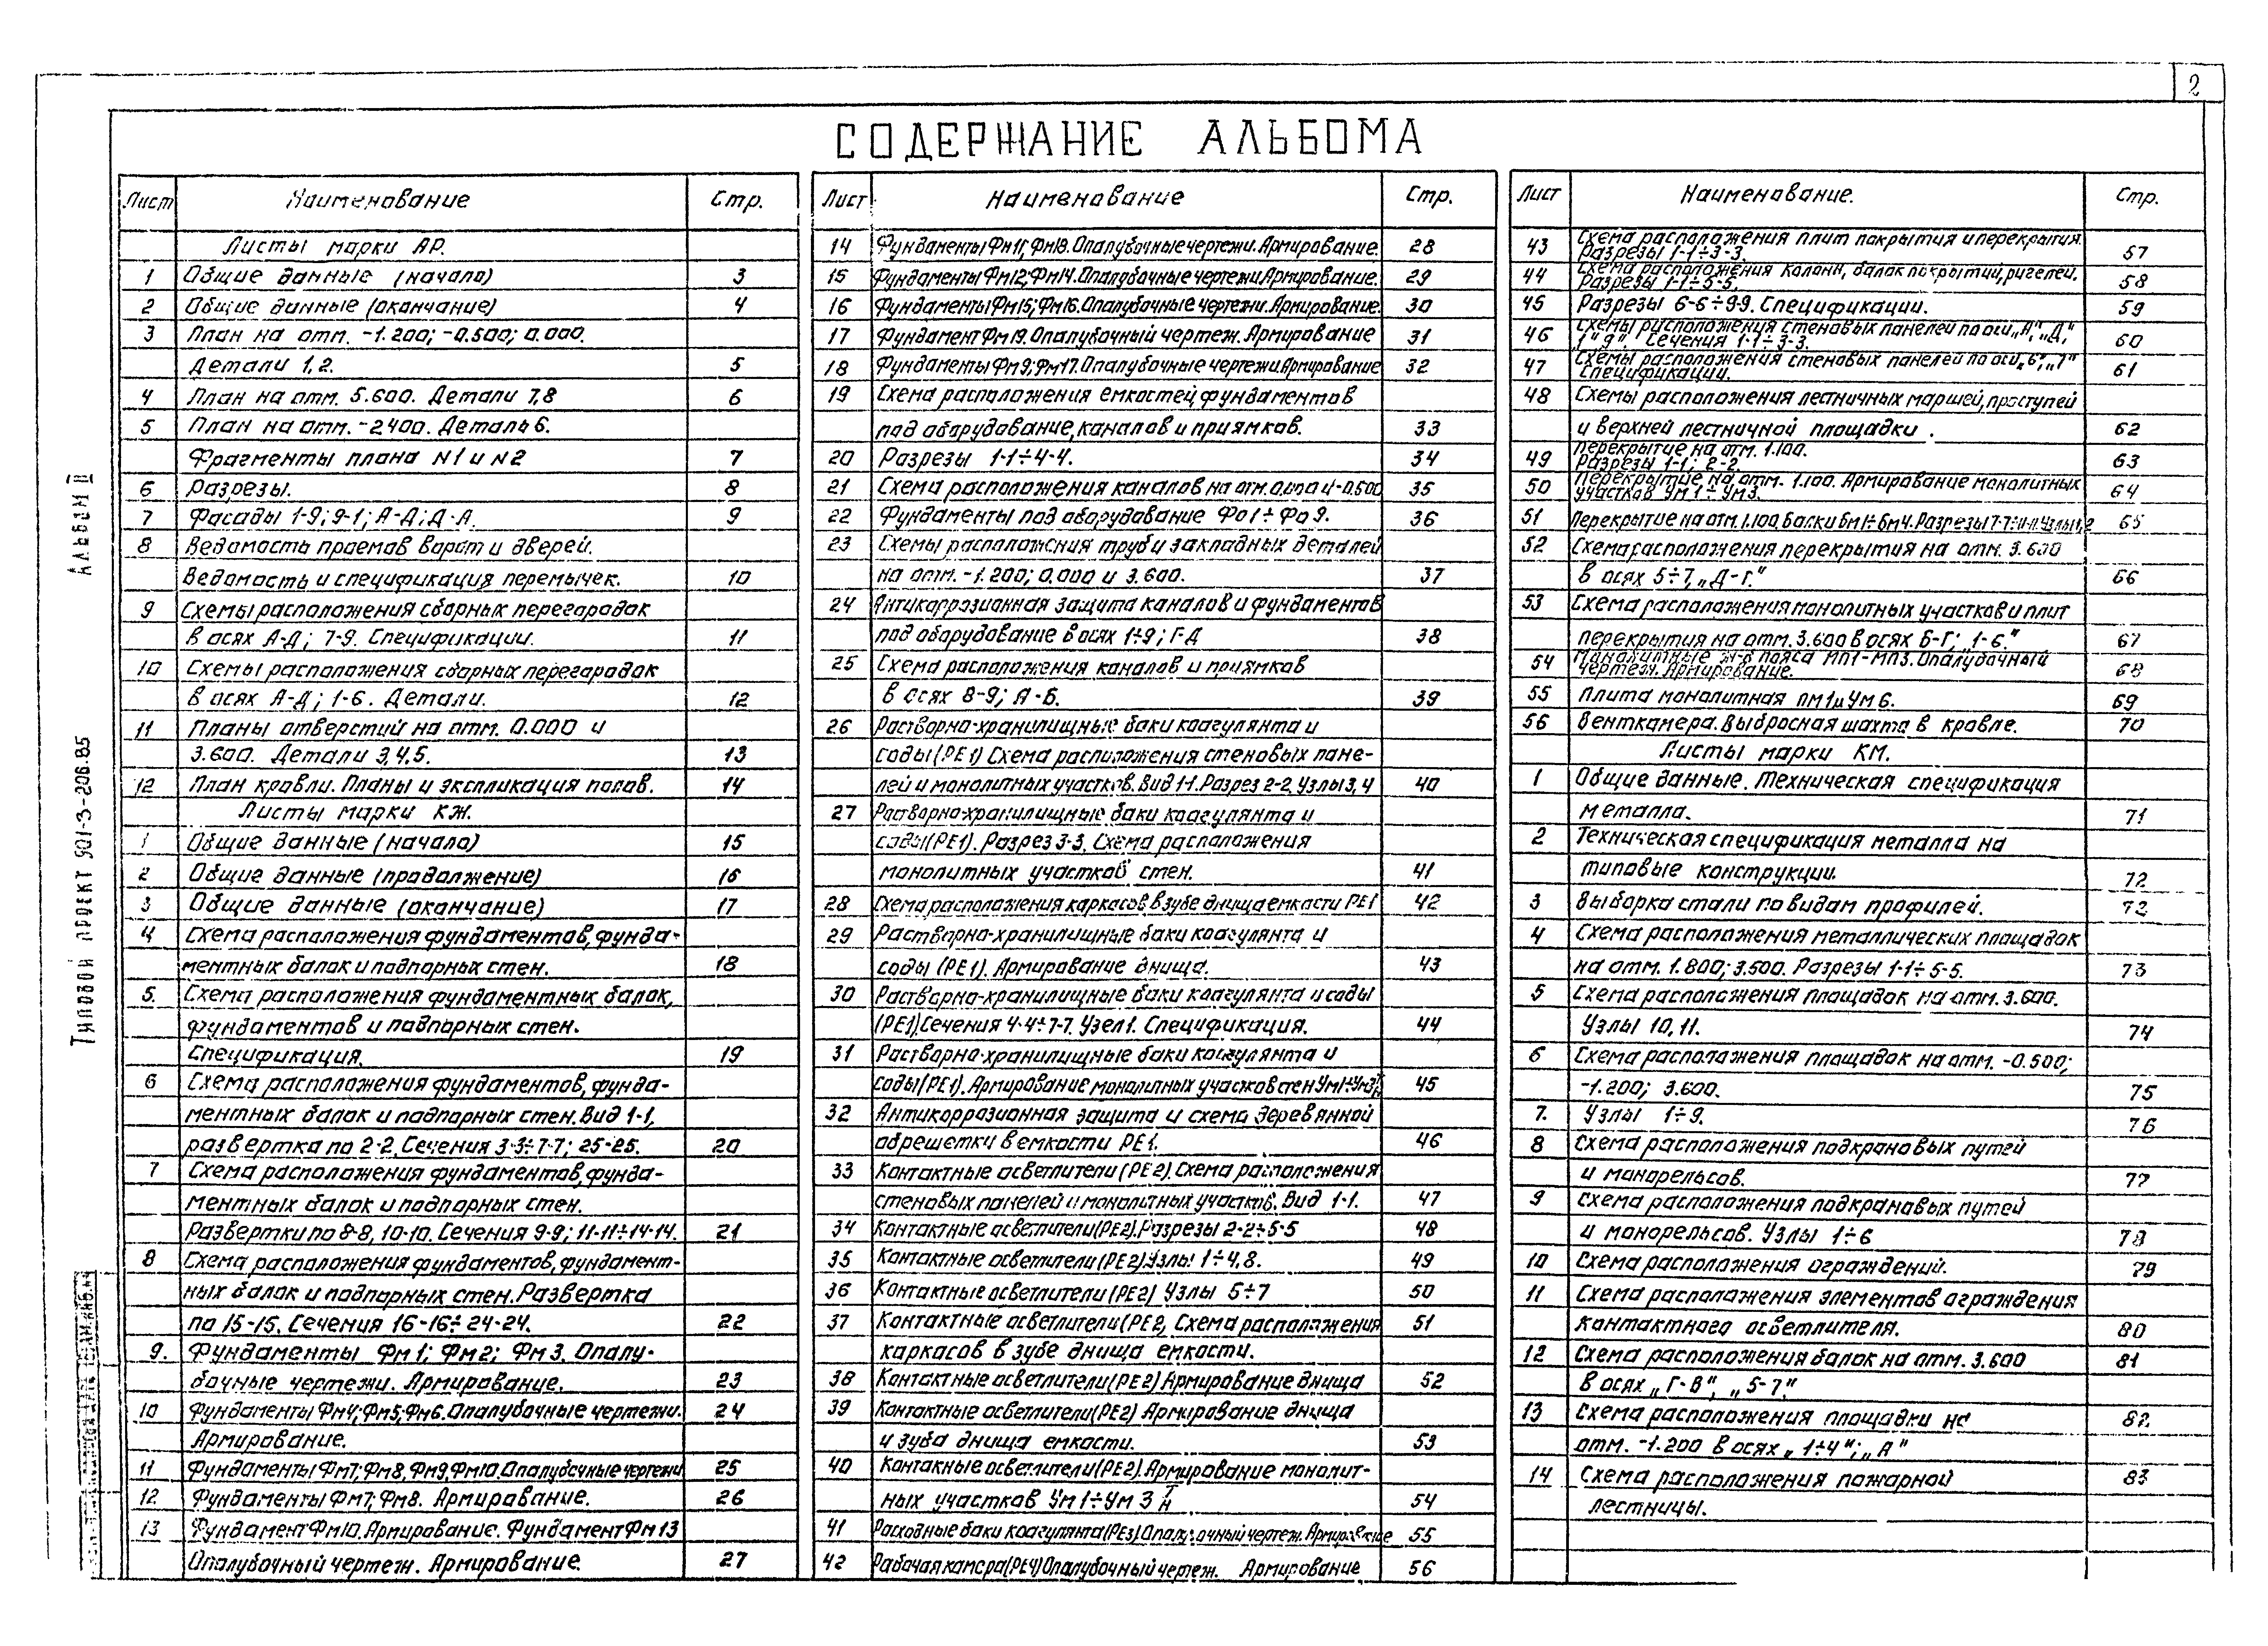 2
СОДЕРЖАНИЕ АЛЬБОМА
Альбом II
Типовой проект 901-3-206.85
Лист Наименование Стр.
Листы марки АР.
1 Общие данные (начало) 3
2 Общие данные (окончание) 4
3 План на отм. -1.200; -0.500; 0.000.
Детали 1,2. 5
4 План на отм. 5.600. Детали 7,8 6
5 План на отм. -2400. Деталь 6.
Фрагменты плана N1 и N2 7
6 Разрезы. 8
7 Фасады 1-9; 9-1; А-Д; Д-А. 9
8 Ведомость проемов ворот и дверей.
Ведомость и спецификация перемычек. 10
9 Схемы расположения сборных перегородок
в осях А-Д; 7-9. Спецификации. 11
10 Схемы расположения сборных перегородок
в осях А-Д; 1-6. Детали. 12
11 Планы отверстий на отм. 0.000 и
3.600. Детали 3,4,5. 13
12 План кровли. Планы и экспликация полов. 14
Листы марки КЖ.
1 Общие данные (начало) 15
2 Общие данные (продолжение) 16
3 Общие данные (окончание) 17
4 Схема расположения фундаментов, фунда-
ментных балок и подпорных стен. 18
5. Схема расположения фундаментных балок,
фундаментов и подпорных стен.
Спецификация. 19
6 Схема расположения фундаментов, фунда-
ментных балок и подпорных стен. Вид 1-1,
развертка по 2-2. Сечения 3-3÷7-7; 25-25. 20
7 Схема расположения фундаментов, фунда-
ментных балок и подпорных стен.
Развертки по 8-8, 10-10. Сечения 9-9; 11-11÷14-14. 21
8 Схема расположения фундаментов, фундамент-
ных балок и подпорных стен. Развертка
по 15-15. Сечения 16-16÷24-24. 22
9. Фундаменты Фм1; Фм2; Фм3. Опалу-
бочные чертежи. Армирование. 23
10 Фундаменты Фм4; Фм5; Фм6. Опалубочные чертежи. 24
Армирование.
11 Фундаменты Фм7; Фм8, Фм9, Фм10. Опалубочные чертежи 25
12 Фундаменты Фм7; Фм8. Армирование. 26
13 Фундамент Фм10. Армирование. Фундамент Фм13
Опалубочный чертеж. Армирование. 27
Лист Наименование Стр.
14 Фундаменты Фм11, Фм18. Опалубочные чертежи. Армирование. 28
15 Фундаменты Фм12; Фм14. Опалубочные чертежи Армирование. 29
16 Фундаменты Фм15; Фм16. Опалубочные чертежи. Армирование. 30
17 Фундамент Фм19. Опалубочный чертеж. Армирование 31
18 Фундаменты Фм9; Фм17. Опалубочные чертежи Армирование 32
19 Схема расположения емкостей, фундаментов
под оборудование, каналов и приямков. 33
20 Разрезы 1-1÷4-4. 34
21 Схема расположения каналов на отм. 0.000 и -0.500 35
22 Фундаменты под оборудование Фо1÷Фо9. 36
23 Схемы расположения труб и закладных деталей
на отм. -1.200; 0.000 и 3.600. 37
24 Антикоррозионная защита каналов и фундаментов
под оборудование в осях 1÷9; Г-Д 38
25 Схема расположения каналов и приямков
в осях 8-9; А-Б. 39
26 Растворно-хранилищные баки коагулянта и
соды (РЕ1) Схема расположения стеновых пане-
лей и монолитных участков. Вид 1-1. Разрез 2-2. Узлы 3,4 40
27 Растворно-хранилищные баки коагулянта и
соды (РЕ1). Разрез 3-3. Схема расположения
монолитных участков стен. 41
28 Схема расположения каркасов в зубе днища емкости РЕ1 42
29 Растворно-хранилищные баки коагулянта и
соды (РЕ1). Армирование днища. 43
30 Растворно-хранилищные баки коагулянта и соды
(РЕ1). Сечения 4-4÷7-7. Узел 1. Спецификация. 44
31 Растворно-хранилищные баки коагулянта и
соды (РЕ1). Армирование монолитных участков стен 45
32 Антикоррозионная защита и схема деревянной
обрешетки в емкости РЕ1. 46
33 Контактные осветлители (РЕ2). Схема расположения
стеновых панелей и монолитных участков. Вид 1-1. 47
34 Контактные осветлители (РЕ2). Разрезы 2-2÷5-5 48
35 Контактные осветлители (РЕ2) Узлы 1÷4,8. 49
36 Контактные осветлители (РЕ2) Узлы 5÷7 50
37 Контактные осветлители (РЕ2) Схема расположения 51
каркасов в зубе днища емкости.
38 Контактные осветлители (РЕ2) Армирование днища 52
39 Контактные осветлители (РЕ2) Армирование днища
и зуба днища емкости. 53
40 Контакные осветлители (РЕ2). Армирование монолит-
ных участков Ум1÷Ум3 54
41 Расходные баки коагулянта (РЕ3) Опалубочный чертеж. Армирование 55
42 Рабочая камера (РЕ4) Опалубочный чертеж. Армирование 56
Лист Наименование. Стр.
43 Схема расположения плит покрытия и перекрытия.
Разрезы 1-1÷3-3. 57
44 Схема расположения колонн, балок покрытий, ригелей.
Разрезы 1-1÷5-5. 58
45 Разрезы 6-6÷9-9. Спецификации. 59
46 Схемы расположения стеновых панелей по оси „А", „Д",
„1" „9". Сечения 1-1÷3-3. 60
47 Схемы расположения стеновых панелей по оси „6", „7"
Спецификации. 61
48 Схемы расположения лестничных маршей, проступей
и верхней лестничной площадки. 62
49 Перекрытие на отм. 1.100.
Разрезы 1-1; 2-2. 63
50 Перекрытие на отм. 1.100. Армирование монолитных
участков Ум1÷Ум3. 64
51 Перекрытие на отм. 1.100, балки Бм1÷Бм4. Разрезы 65
52 Схема расположения перекрытия на отм. 3.600
в осях 5÷7, „Д-Г." 66
53 Схема расположения монолитных участков и плит
перекрытия на отм. 3.600 в осях Б-Г; „1-6" 67
54 Монолитные ж-б пояса МП1-МП3. Опалубочный
чертеж. Армирование. 68
55 Плита монолитная Пм1 и Ум6. 69
56 Венткамера. Выбросная шахта в кровле. 70
Листы марки КМ.
1 Общие данные. Техническая спецификация
металла. 71
2 Техническая спецификация металла на
типовые конструкции. 72
3 Выборка стали по видам профилей. 72
4 Схема расположения металлических площадок
на отм. 1.800; 3.500. Разрезы 1-1÷5-5. 73
5 Схема расположения площадок на отм. 3.600.
Узлы 10, 11. 74
6 Схема расположения площадок на отм. -0.500;
-1.200; 3.600. 75
7. Узлы 1÷9. 76
8 Схема расположения подкрановых путей
и монорельсов. 77
9 Схема расположения подкрановых путей
и монорельсов. Узлы 1÷6 78
10 Схема расположения ограждений. 79
11 Схема расположения элементов ограждения
контактного осветлителя. 80
12 Схема расположения балок на отм. 3.600 81
в осях „Г-В", „5-7."
13 Схема расположения площадки на 82
отм. -1.200 в осях „1÷4"; „А"
14 Схема расположения пожарной 83
лестницы.